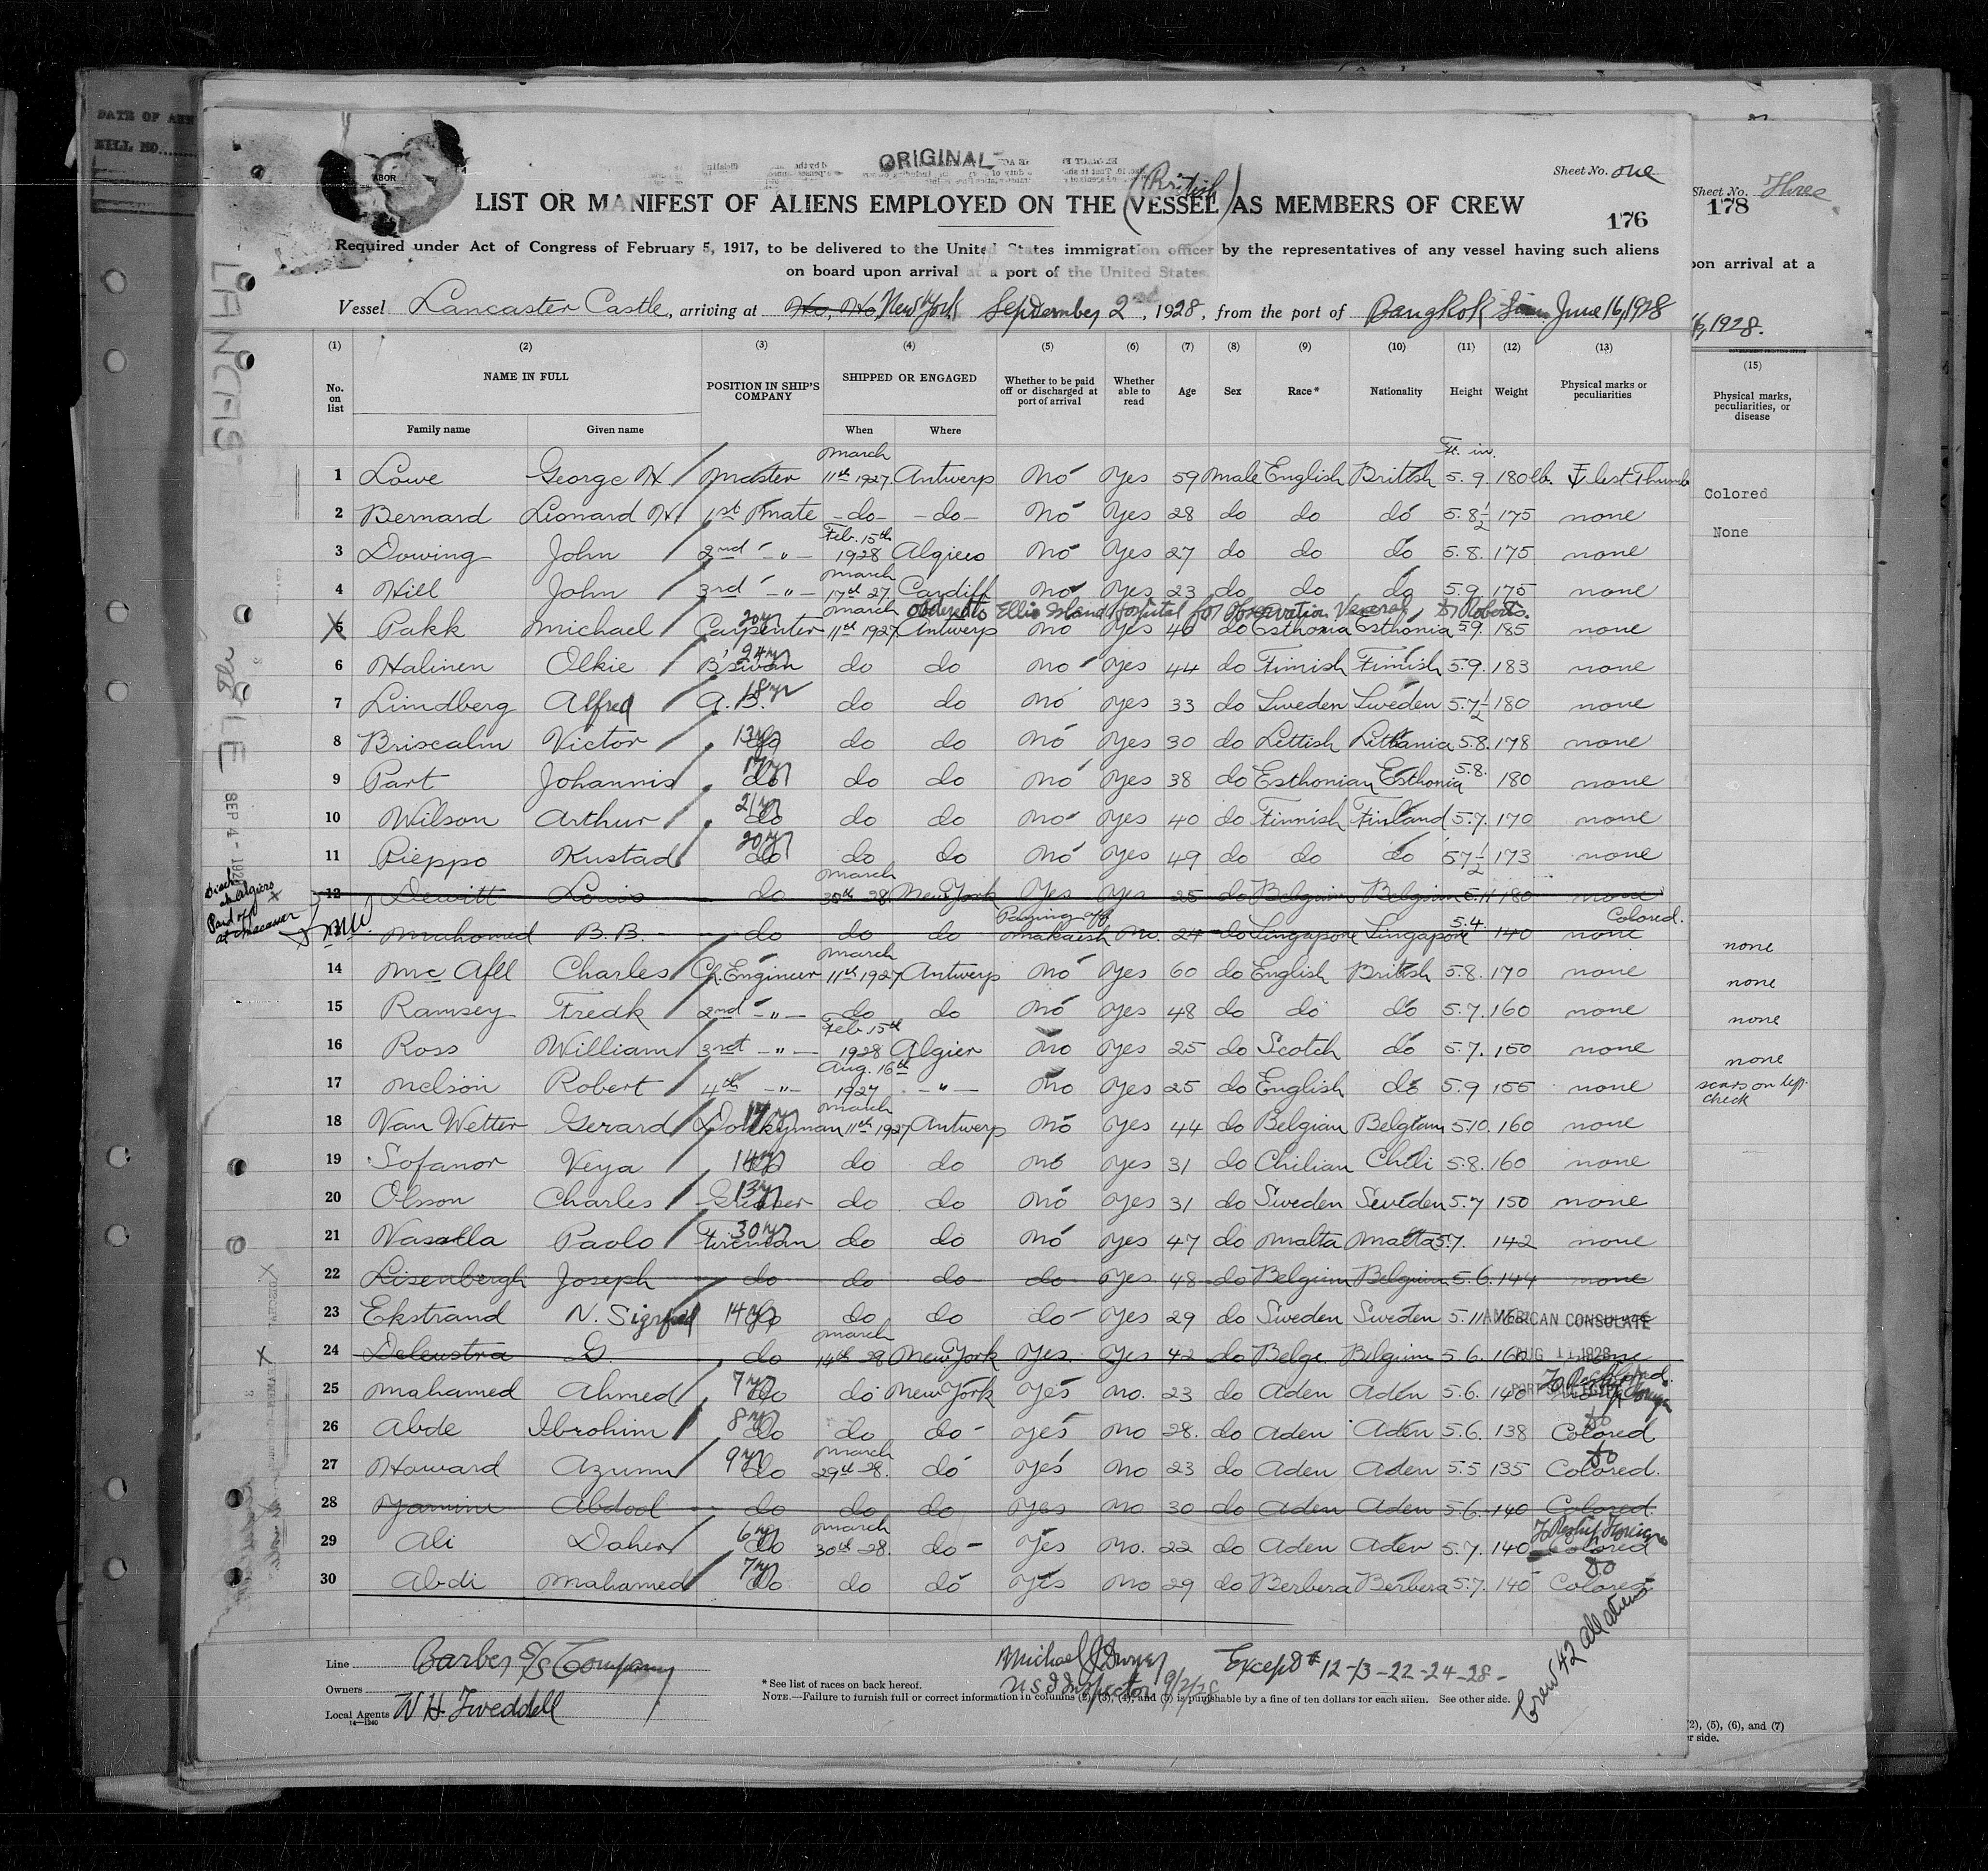 DATE OF ARR
BILL NO.
ABOR
ORIGINAL
Sheet No. one
(British)
LIST OR MANIFEST OF ALIENS EMPLOYED ON THE VESSEL AS MEMBERS OF CREW
176
Required under Act of Congress of February 5, 1917, to be delivered to the United States immigration officer by the representatives of any vessel having such aliens
on board upon arrival at a port of the United States.
Vessel Lancaster Castle, arriving at New York September 2nd, 1928, from the port of Bangkok Siam June 16, 1928
(1) (2) (3) (4) (5) (6) (7) (8) (9) (10) (11) (12) (13)
No. on list NAME IN FULL POSITION IN SHIP'S COMPANY SHIPPED OR ENGAGED Whether to be paid off or discharged at port of arrival Whether able to read Age Sex Race* Nationality Height Weight Physical marks or peculiarities
Family name Given name When Where
Ft. in.
1 Lowe George H. Master March 11th 1927 Antwerp No Yes 59 Male English British 5. 9. 180 lb. lest Thumb
2 Bernard Lionard H. 1st Mate -do- -do- No Yes 28 do do do 5.8 1/2 175 none
3 Dowing John 2nd -"- Feb. 15th 1928 Algiers No Yes 27 do do do 5.8. 175 none
4 Hill John 3rd -"- March 17th 27. Cardiff No Yes 23 do do do 5.9 175 none
Ellis Island Hospital for Observation Dr Roberts.
5 Pakk Michael 20 yr Carpenter March 11th 1927 Antwerp No Yes 40 do Esthonia Esthonia 5.9. 185 none
6 Halinen Olkie 24 yr B'swan do do no Yes 44 do Finnish Finnish 5.9. 183 none
7 Lindberg Alfred 18 yr A.B. do do No Yes 33 do Sweden Sweden 5.7 1/2 180 none
8 Briscalm Victor 13 yr do do do No Yes 30 do Lettish Lithania 5.8. 178 none
9 Part Johannis do do do No Yes 38 do Esthonian Esthonia 5.8. 180 none
10 Wilson Arthur 21 yr do do do No Yes 40 do Finnish Finland 5.7. 170 none
11 Pieppo Kustad 20 yr do do do No Yes 49 do do do 5 7 1/2 173 none
12 Dewitt Louis do March 30th 28 New York Yes Yes 25 do Belgium Belgium 5.11 180 none
13 Mahomed B.B. do do do Paying off No. 24 do Singapore Singapore 5.4. 140 none Colored.
14 Mc Afll Charles Ch. Engineer March 11th 1927 Antwerp No Yes 60 do English British 5.8. 170 none
15 Ramsey Fredk 2nd -"- do do No Yes 48 do do do 5.7. 160 none
16 Ross William 3rd -"- Feb. 15th 1928 Algier No Yes 25 do Scotch do 5.7. 150 none
17 Nelson Robert 4th -"- Aug. 16th 1927 -"- No Yes 25 do English do 5.9 155 none
18 Van Wetter Gerard Donkeyman March 11th 1927 Antwerp No Yes 44 do Belgian Belgium 5.10. 160 none
19 Sofanor Veya 14 yr do do do No Yes 31 do Chilian Chili 5.8. 160 none
20 Olsson Charles 13 yr Greaser do do No Yes 31 do Sweden Sweden 5.7 150 none
21 Vasalla Paolo 30 yr Fireman do do No Yes 47 do Malta Malta 5.7. 142 none
22 Lisenbergh Joseph do do do do Yes 48 do Belgium Belgium 5.6. 144 none
23 Ekstrand N. Sigrfied 14 yr do do do do Yes 29 do Sweden Sweden 5.11
AMERICAN CONSULATE
24 Deleustra G. do March 14th 28 New York Yes. Yes 42 do Belge. Belgium 5.6. 160 none
AUG 11 1928
25 Mahamed Ahmed 7 yr do do New York Yes no. 23 do Aden Aden 5.6. 140
26 Abde Ibrohim 8 yr do do do Yes no 28. do Aden Aden 5.6. 138 Colored do
27 Howard Azumu 9 yr do March 29th 28. do Yes no 23 do Aden Aden 5.5 135 Colored. do
28 Yamini Abdool do do do Yes no 30 do Aden Aden 5.6. 140 Colored.
29 Ali Daher 6 yr do March 30th 28. do Yes no. 22 do Aden Aden 5.7. 140 Colored To Reship Foreign
30 Abdi Mahamed 7 yr do do do Yes no 29 do Berbera Berbera 5.7. 140 Colored do
Crew 42 all aliens
Line Barber S/S Company
Owners
Local Agents W H Tweddell
14—1240
*See list of races on back hereof.
NOTE.—Failure to furnish full or correct information in columns (2), (3), (4), and (5) is punishable by a fine of ten dollars for each alien. See other side.
U S I Inspector 9/2/28
Except # 12-13-22-24-28-
LANCAS
SEP 4 - 1928
Disch at Algiers
Paid off at Macassar
Sheet No. Three
178
pon arrival at a
16, 1928.
(15)
Physical marks, peculiarities, or disease
Colored
None
none
none
none
none
scars on left check
(2), (5), (6), and (7)
r side.